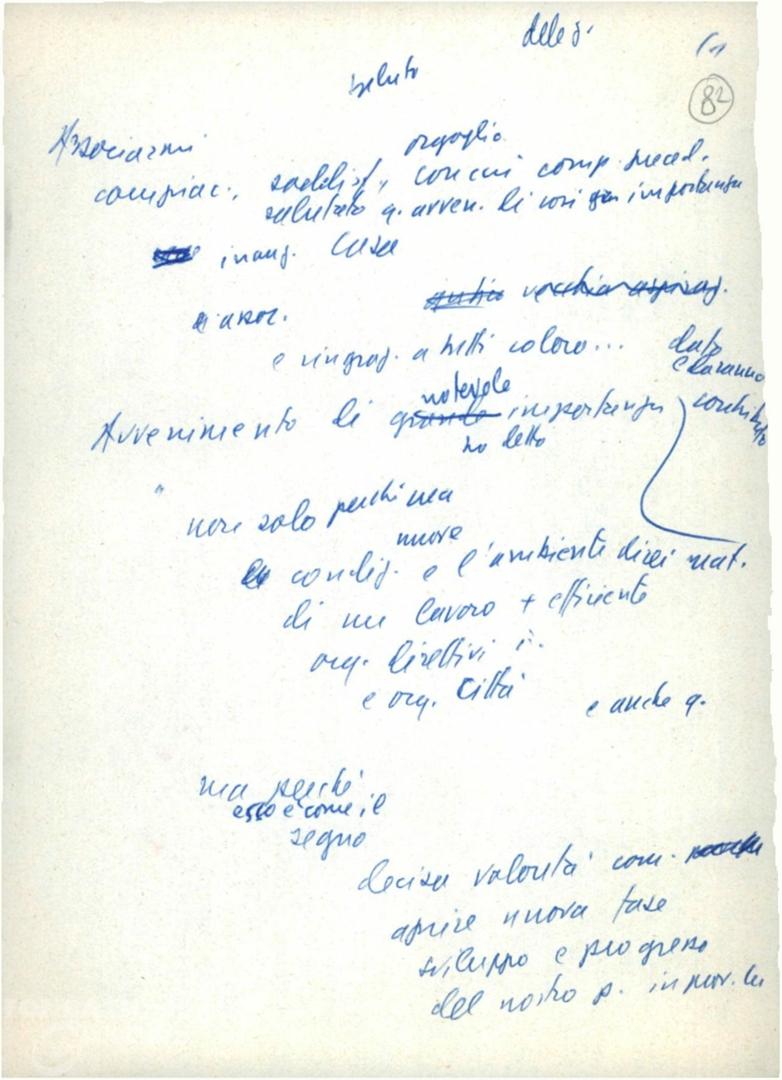 deleg.
saluto
82
Associarmi
orgoglio
compiac., soddisf., con cui comp. preced.
salutato q. avven. di così importanza
inaug. Casa
antica vecchia aspiraz.
e ringraz. a tutti coloro... dato
e daranno
contributo
notevole
Avvenimento di grande importanza
ho detto
non solo perché
nuove
condiz. e l'ambiente direi mat.
di un lavoro + efficiente
org. direttivi
e org. città
e anche q.
ma perché
esso è come il
segno
decisa volontà com.
aprire nuova fase
sviluppo e progresso
del nostro p. in prov.